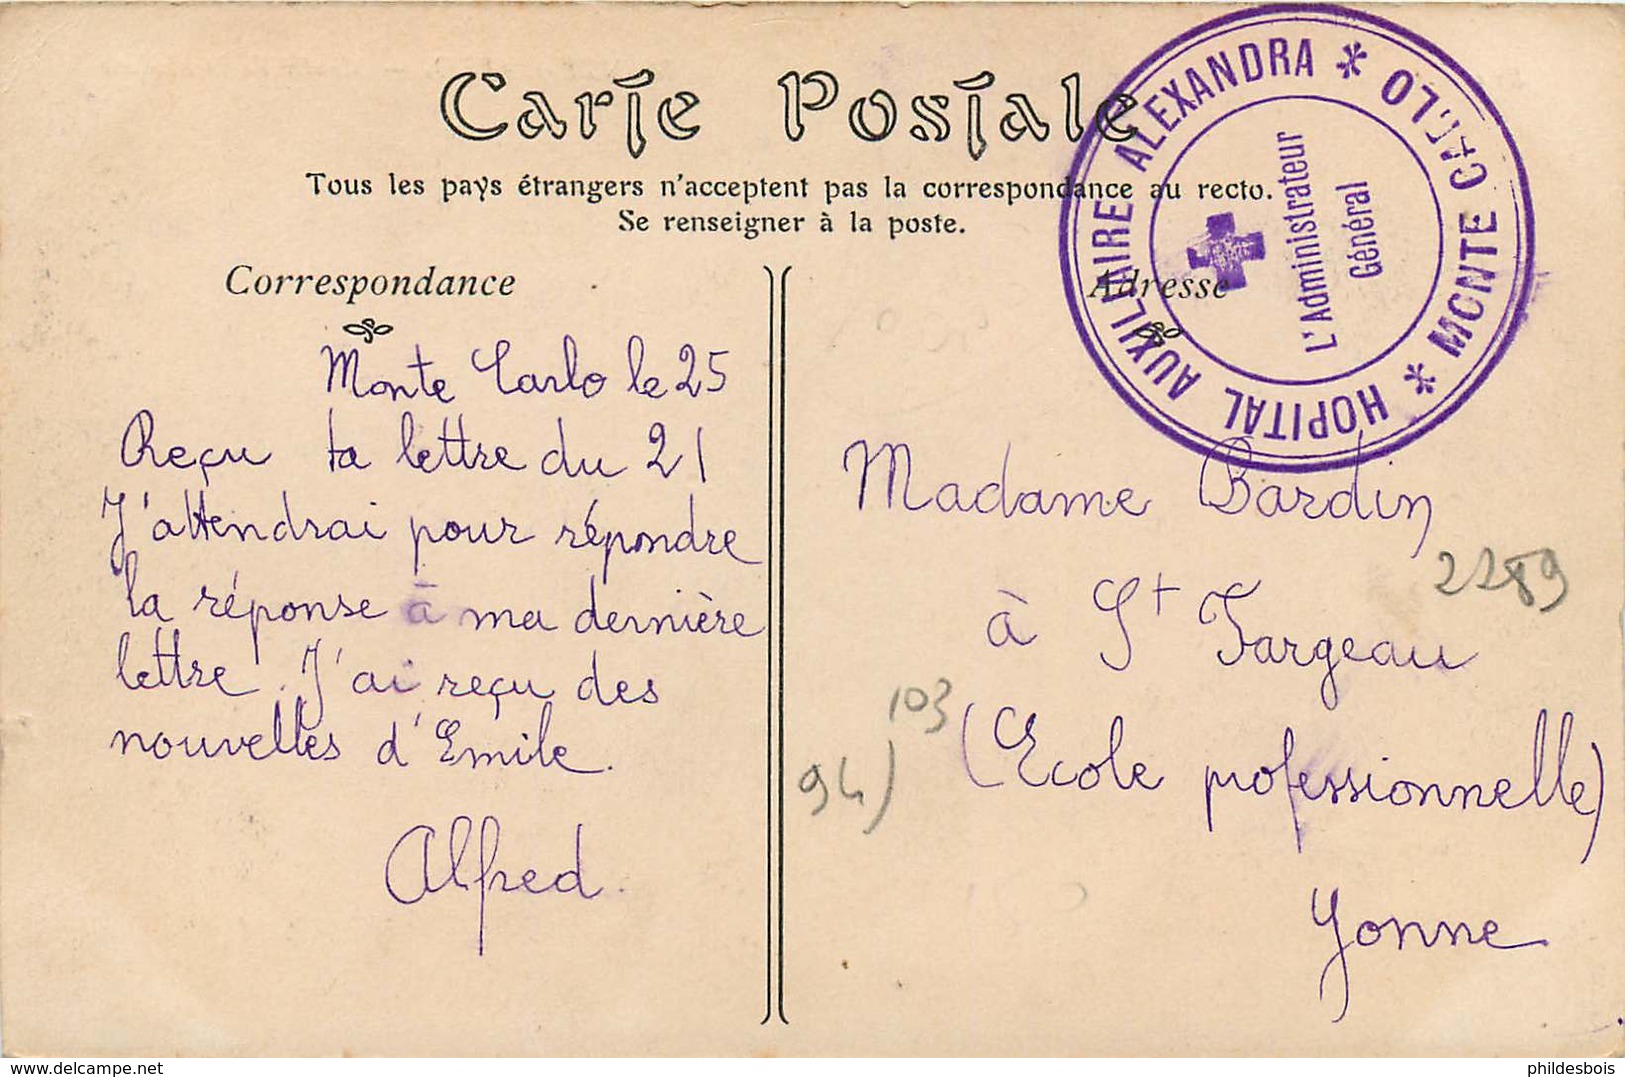 Carte Postale
Tous les pays étrangers n'acceptent pas la correspondance au recto.
Se renseigner à la poste.
Correspondance
Adresse
HOPITAL AUXILIAIRE ALEXANDRA * MONTE CARLO *
L'Administrateur
Général
Monte Carlo le 25
Reçu ta lettre du 21
J'attendrai pour répondre
la réponse à ma dernière
lettre. J'ai reçu des
nouvelles d'Emile.
Alfred.
Madame Bardin
à St Fargeau
(Ecole professionnelle)
Yonne
2289
103
94)
www.delcampe.net
phildesbois